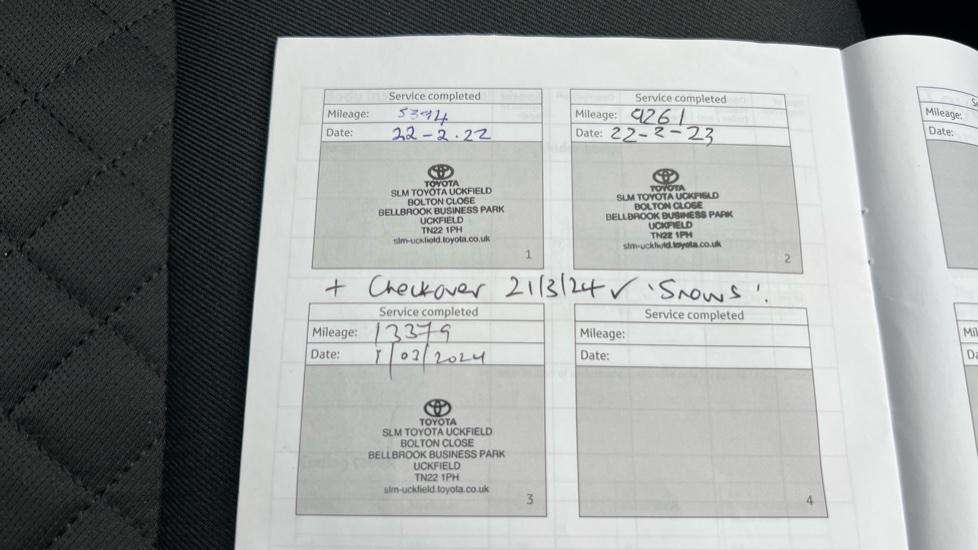 Service completed
Mileage: 5394
Date: 22-2.22
TOYOTA
SLM TOYOTA UCKFIELD
BOLTON CLOSE
BELLBROOK BUSINESS PARK
UCKFIELD
TN22 1PH
slm-uckfield.toyota.co.uk
1
Service completed
Mileage: 9261
Date: 22-2-23
TOYOTA
SLM TOYOTA UCKFIELD
BOLTON CLOSE
BELLBROOK BUSINESS PARK
UCKFIELD
TN22 1PH
slm-uckfield.toyota.co.uk
2
+ Checkover 21/3/24 ✓ 'Snows'.
Service completed
Mileage: 13379
Date: 1/03/2024
TOYOTA
SLM TOYOTA UCKFIELD
BOLTON CLOSE
BELLBROOK BUSINESS PARK
UCKFIELD
TN22 1PH
slm-uckfield.toyota.co.uk
3
Service completed
Mileage:
Date:
4
Mileage:
Date: